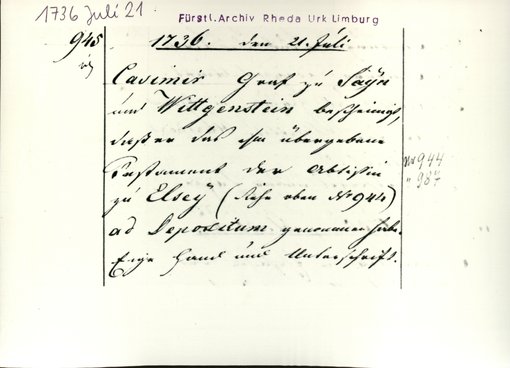 1736 Juli 21.
Fürstl. Archiv Rheda Urk Limburg
945
1736. den 21. Juli
Casimir Graf zu Sayn
und Wittgenstein bescheinigt,
daß er das ihm übergebene
Testament der Abtißin
zu Elsey (siehe oben No 944)
ad Depositum genommen habe.
Eige Hand und Unterschrift.
No 944
" 987